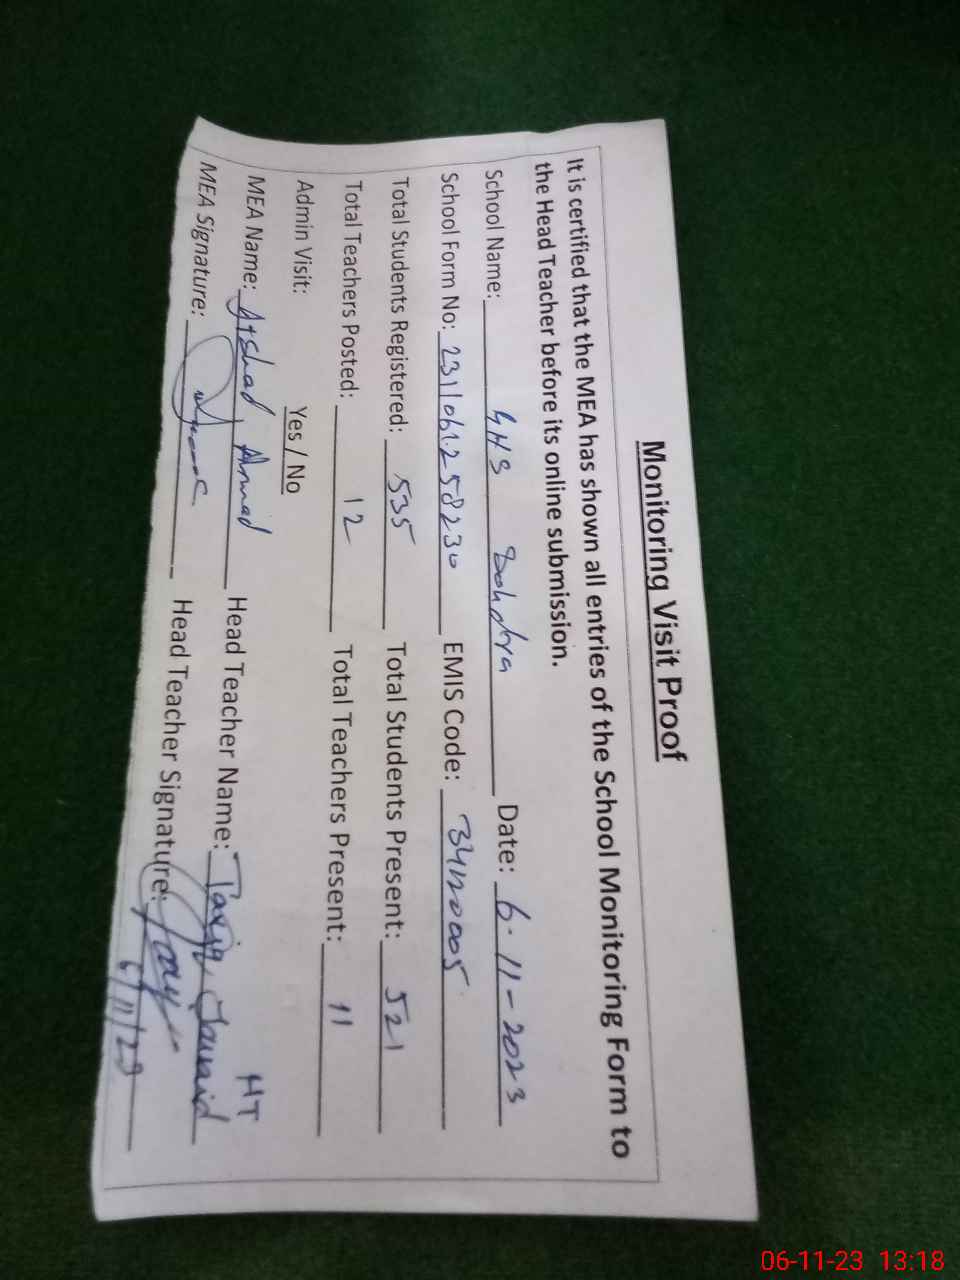 Monitoring Visit Proof
It is certified that the MEA has shown all entries of the School Monitoring Form to
the Head Teacher before its online submission.
School Name: GHS Dohatra Date: 6-11-2023
School Form No: 2311061258230 EMIS Code: 34120005
Total Students Registered: 535 Total Students Present: 521
Total Teachers Posted: 12 Total Teachers Present: 11
Admin Visit: Yes / No
HT
MEA Name: Arshad Ahmad Head Teacher Name: Javaid
MEA Signature: Head Teacher Signature:
6/11/23
06-11-23 13:18